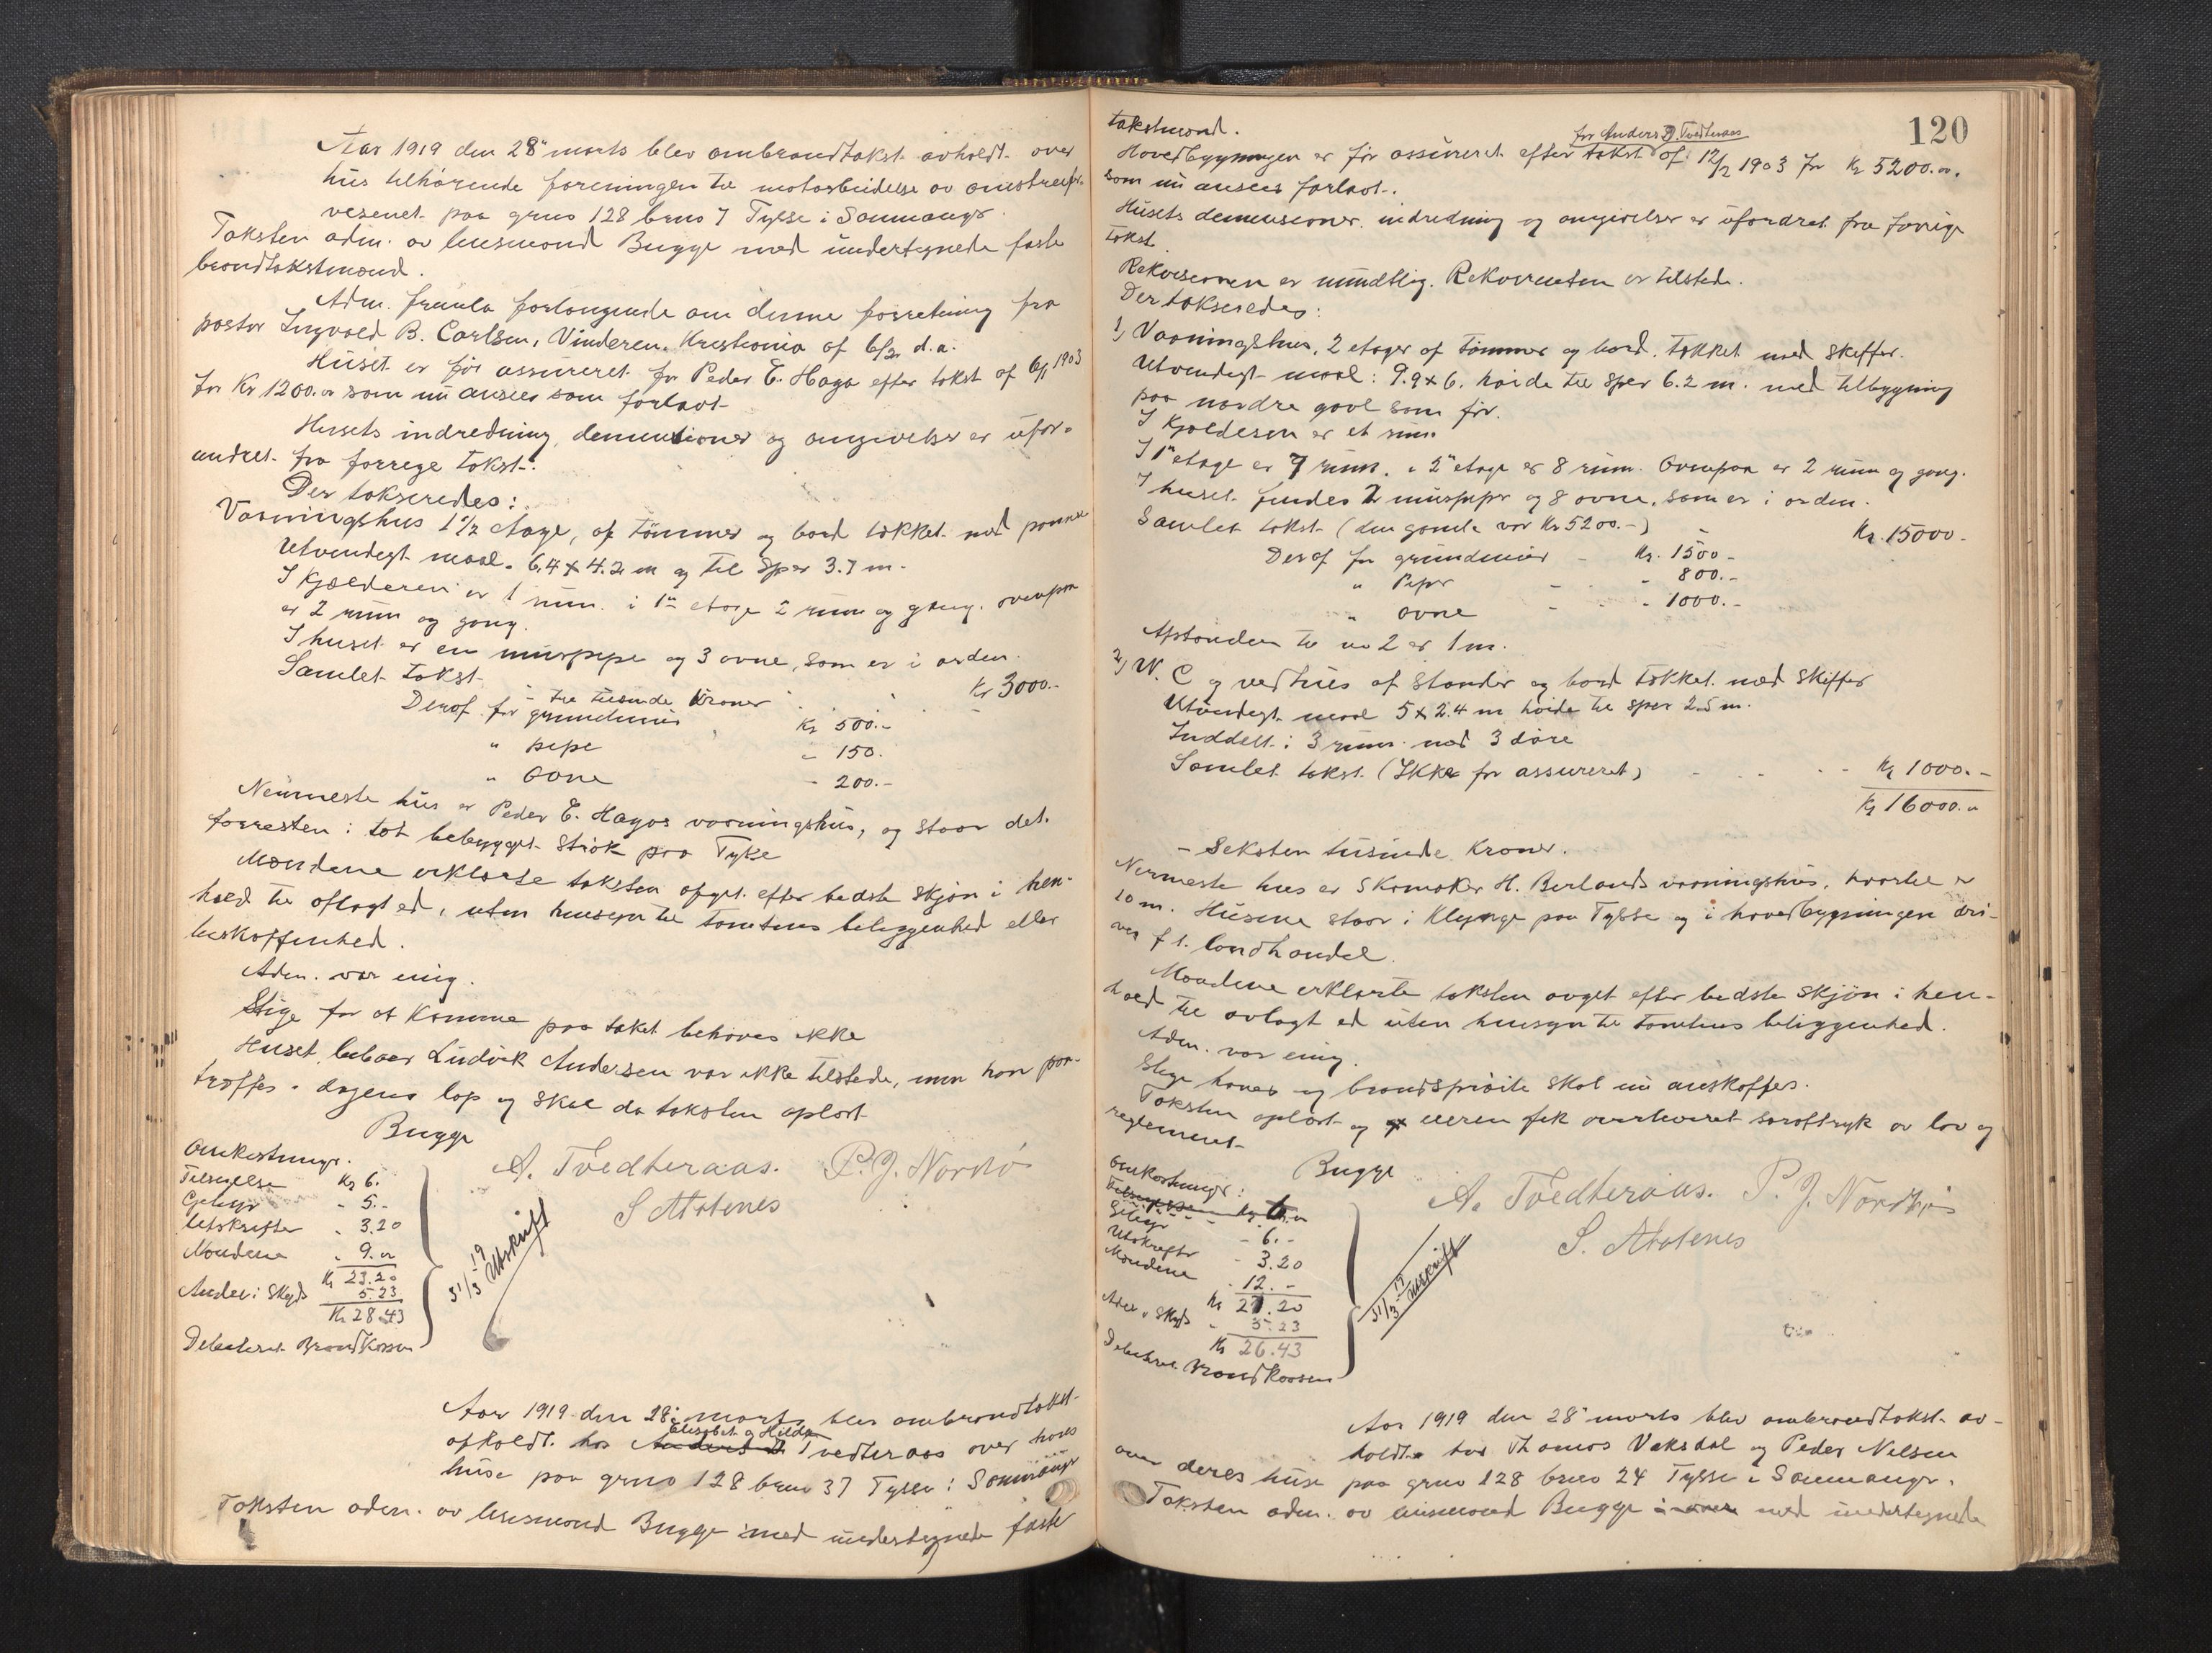 Aar 1919 den 28de marts blev ombrandtakst avholdt over
hus tilhørende foreningen til motarbeidelse av omstreifer-
vesenet paa grno 128 brno 7 Tysse i Samnanger.
Taksten adm. av lensmand Bugge med undertegnede faste
brandtakstmænd.
Adm. fremla forlangende om denne forretning fra
pastor Ingvald B. Carlsen, Vinderen, Kristiania af 6/2 d.a.
Huset er før assureret for Peder E. Haga efter takst af 6/1 1903
for Kr 1200.00 som nu ansees som forlavt
Husets indredning, dementioner og angivelser er ufor-
andret fra forrige takst.
Der takseredes:
Vaaningshus 1 1/2 etage, af tømmer og bord tækket med panne
Utvendigt maal. 6.4 x 4.2 m og til sper 3.7 m.
I kjælderen er 1 rum. i 1ste etage 2 rum og gang. ovenpaa
er 2 rum og gang.
I huset er en murpipe og 3 ovne, som er i orden.
Samlet takst Kr 3000.-
- tre tusinde kroner
Derof for grundmur Kr 500.-
" pipe - 150.
" ovne - 200.-
Nærmeste hus er Peder E. Hagas vaaningshus, og staar det
forresten i tæt bebygget strøk paa Tysse
Mændene erklærte taksten afgit efter bedste skjøn i hen-
hold til aflagt ed, uten hensyn til tomtens beliggenhed eller
beskaffenhed.
Adm. var enig.
Stige for at komme paa taket behøves ikke
Huset beboer Ludvik Andersen var ikke tilstede, men han paa-
træffes i dagens løp og skal da taksten oplæst
Bugge
A. Tvedteraas. P. J. Nordbø
S Aktenes
Omkostninger.
Tilsigelse Kr 6.
Gebyr - 5.-
Utskrifter - 3.20
Mændene - 9.00
Kr 23.20
Andel i Skyds 5.23
Kr 28.43
Debiteret Brandkassen
31/3 19 Utskrift
Aar 1919 den 28de marts blev ombrandtakst
afholdt hos Anders D. Elisabet og Hilda Tvedteraas over hoves
huse paa grno 128 brno 37 Tysse i Samnanger
Taksten adm. av lensmand Bugge med undertegnede faste
120
takstmænd.
for Anders D. Tvedteraas
Hovedbygningen er før assureret efter takst af 12/2 1903 for Kr 5200.00.
som nu ansees forlavt.
Husets demensioner, indredning og angivelser er uforandret fra forrige
takst.
Rekvisisionen er mundtlig. Rekvirenten er tilstede.
Der takseredes:
1) Vaaningshus, 2 etager af tømmer og bord, tækket med skiffer.
Utvendigt maal: 9.9 x 6. høide til sper 6.2 m. med tilbygning
paa nordre gavl som før.
I kjælderen er et rum.
I 1ste etage er 7 rum. i 2den etage er 8 rum. Ovenpaa er 2 rum og gang.
I huset findes 2 murpiper og 8 ovne, som er i orden.
Samlet takst (den gamle var Kr 5200.-) Kr. 15000.-
Derof for grundmur - Kr. 1500.-
" Piper - 800.-
" ovne - 1000.-
Afstanden til no 2 er 1 m.
2) W. C og vedhus af stander og bord tækket med skiffer
Utvendigt maal 5 x 2.4 m høide til sper 2.5 m.
Inddelt i 3 rum med 3 døre
Samlet takst. (Ikke før assureret) Kr 1000.-
Kr 16000.-
- Seksten tusinde kroner.
Nærmeste hus er skomaker H. Berlands vaaningshus, hvortil er
10 m. Husene staar i klynge paa Tysse og i hovedbygningen dri-
ves f t. landhandel.
Mændene erklærte taksten avgit efter bedste skjøn i hen-
hold til avlagt ed uten hensyn til tomtens beliggenhed.
Adm. var enig.
Stige haves og brandsprøite skal nu anskaffes.
Taksten oplæst og eieren fik overleveret særaftryk av lov og
reglement
Bugge
A. Tvedteraas. P. J. Nordbø
S. Aktenes
Omkostninger:
Tilsigelse Kr
Gebyr - 6.-
Utskrifter - 3.20
Mændene - 12.-
Kr 21.20
Andel i Skyds - 5.23
Kr 26.43
Debiteret Brandkassen
31/3 19 Utskrift
Aar 1919 den 28de marts blev ombrandtakst av-
holdt hos Thomas Vaksdal og Peder Nilsen
over deres huse paa grno 128 brno 24 Tysse i Samnanger.
Taksten adm. av lensmand Bugge med undertegnede